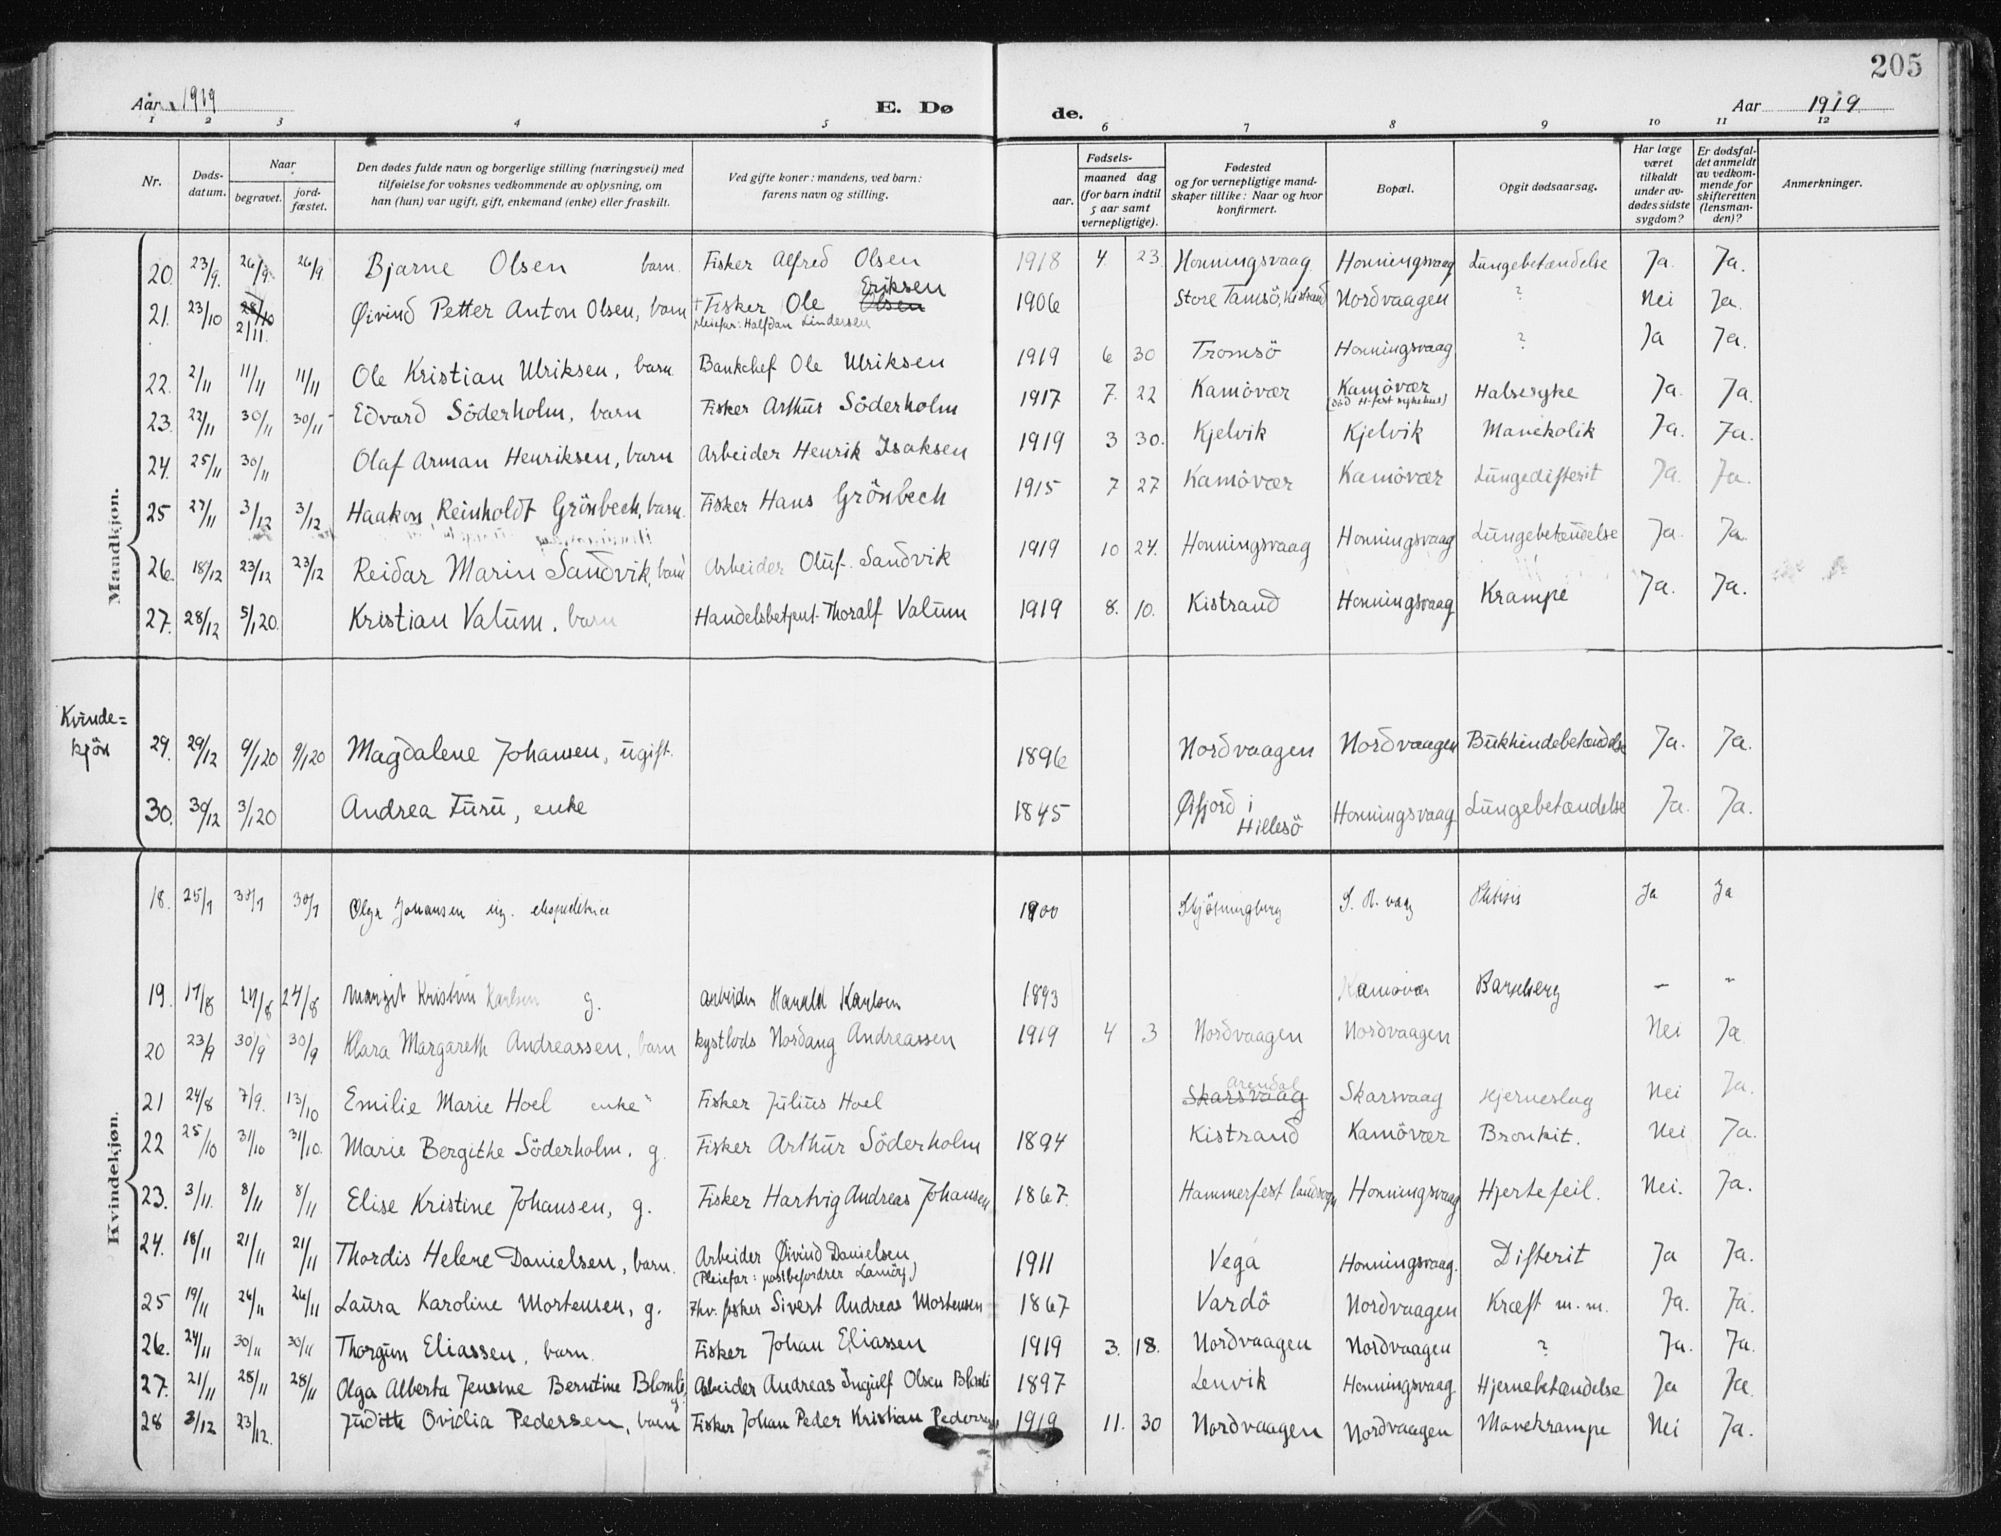 205
Aar 1919
E. Døde.
Aar 1919
1 2 3 4 5 6 7 8 9 10 11 12
Nr. Døds-datum. Naar begravet. jord-fæstet. Den dødes fulde navn og borgerlige stilling (næringsvei) med tilføielse for voksnes vedkommende av oplysning, om han (hun) var ugift, gift, enkemand (enke) eller fraskilt. Ved gifte koner: mandens, ved barn: farens navn og stilling. Fødsels- aar. maaned dag (for barn indtil 5 aar samt vernepligtige). Fødested og for vernepligtige mand-skaper tillike: Naar og hvor konfirmert. Bopæl. Opgit dødsaarsag. Har læge været tilkaldt under av-dødes sidste sygdom? Er dødsfal-det anmeldt av vedkom-mende for skifteretten (lensman-den)? Anmerkninger.
Mandkjøn.
20. 23/9. 26/9. 26/9 Bjarne Olsen barn. Fisker Alfred Olsen 1918 4 23. Honningsvaag Honningsvaag Lungebetændelse Ja. Ja.
21. 23/10 28/10 2/11. Øivind Petter Anton Olsen, barn † Fisker Ole Olsen Eriksen 1906 Store Tamsö, Kistrand Nordvaagen ? Nei Ja.
pleiefar: Halfdan Lindersen
22. 2/11 11/11 11/11 Ole Kristian Ulriksen, barn Bankchef Ole Ulriksen 1919 6 30 Tromsö Honningsvaag ? Ja Ja.
23. 22/11 30/11 30/11 Edvard Söderholm, barn Fisker Arthur Söderholm 1917 7. 22 Kamövær Kamövær (död H-fest sykehus) Halsesyke Ja. Ja.
24. 25/11 30/11 Olaf Arman Henriksen, barn Arbeider Henrik Isaksen 1919 3 30. Kjelvik Kjelvik Mavekolik Ja. Ja.
25 27/11 3/12 3/12 Haakon Reinholdt Grönbech, barn. Fisker Hans Grönbech 1915 7 27 Kamövær Kamövær Lungedifterit Ja. Ja.
26. 18/12 23/12 23/12 Reidar Marin Sandvik, barn Arbeider Oluf. Sandvik 1919 10 24. Honningsvaag Honningsvaag Lungebetændelse Ja. Ja.
27. 28/12 5/1 20. Kristian Valum. barn Handelsbetjent. Thoralf Valum 1919 8. 10. Kistrand Honningsvaag Krampe Ja. Ja.
Kvinde=
kjön
29. 29/12 9/1 20 9/1 20 Magdalene Johansen, ugift. 1896 Nordvaagen Nordvaagen Bukhindebetændelse Ja. Ja.
30. 30/12 3/1 20 Andrea Furu, enke 1845 Øifjord i Hillesö Honningsvaag Lungebetændelse Ja. Ja.
Kvindekjøn.
18. 25/7 30/7 30/7 Olga Johansen ug. ekspeditrice 1900 Ja Ja
19. 17/8 24/8 24/8 Margit Kristine Karlsen g. arbeider Harald Karlsen 1893 Kamövær Barselseng – –
20 23/9 30/9 30/9 Klara Margareth Andreassen, barn kystlods Nordang Andreassen 1919 4 3 Nordvaagen Nordvaagen Nei Ja.
21 24/8 7/9. 13/10 Emilie Marie Hoel enke Fisker Julius Hoel Skarsvaag Arendal Skarsvaag Hjerneslag Nei Ja.
22 25/10 31/10 31/10. Marie Bergithe Söderholm. g. Fisker Arthur Söderholm 1894 Kistrand Kamövær Bronkit. Nei Ja.
23. 3/11. 8/11 8/11 Elise Kristine Johansen, g. Fisker Hartvig Andreas Johansen 1867. Hammerfest landsogn Honningsvaag Hjertefeil. Nei. Ja.
24. 18/11 21/11 21/11 Thordis Helene Danielsen, barn. Arbeider Øivind Danielsen 1911 Vega Honningsvaag. Difterit Ja Ja.
(Pleiefar: postbefordrer)
25 19/11 26/11 26/11 Laura Karoline Mortensen, g. Fhv. fisker Sivert Andreas Mortensen 1867 Vardö Nordvaagen Kræft m.m. Ja. Ja.
26. 24/11 30/11 30/11 Thorgun Eliassen, barn. Fisker Johan Eliassen 1919 3. 18. Nordvaagen Nordvaagen ? Ja. Ja.
27. 21/11 28/11 28/11 Olga Alberta Jensine Berntine Blomli, g. Arbeider Andreas Ingulf Olsen Blomli 1897 Lenvik Honningsvaag Hjernebetændelse Ja Ja.
28 3/12 23/12. Juditte Ovidia Pedersen, barn Fisker Johan Peder Kristian Pedersen 1919 11. 30 Nordvaagen Nordvaagen Mavekrampe Nei Ja.